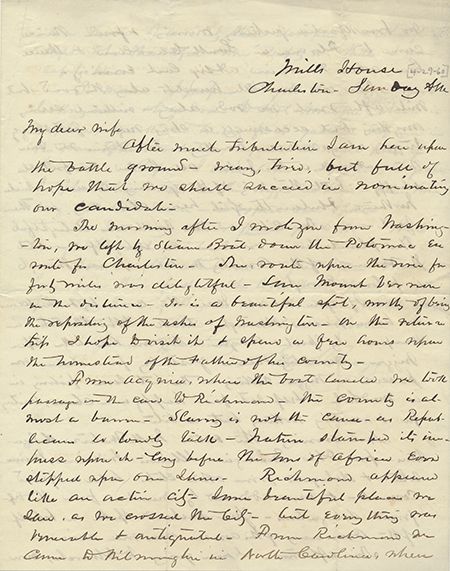 Mills House
[4-29-60]
Charleston - Sunday
My dear wife
After much tribulation I am here upon
the battle ground - weary, tired, but full of
hope that we shall succeed in nominating
our candidate -
The morning after I wrote you from Washing-
ton, we left by Steam Boat, down the Potomac en
route for Charleston - The route upon the river for
forty miles was delightful - Saw Mount Vernon
in the distance - It is a beautiful spot, worthy of being
the repository of the ashes of Washington - On the return
trip I hope to visit it & spend a few hours upon
the homestead of the Father of his country -
From Acquia, where the boat landed we took
passage in the cars to Richmond - The country is al-
most a barren - Slavery is not the cause - as Repub-
licans so loudly talk - Nature stamped its im-
press upon it - long before the sons of Africa ever
stepped upon our shores - Richmond appeared
like an active city - Some beautiful places we
saw, as we crossed the City - but everything was
venerable & antiquated - From Richmond we
came to Wilmington in North Carolina, where